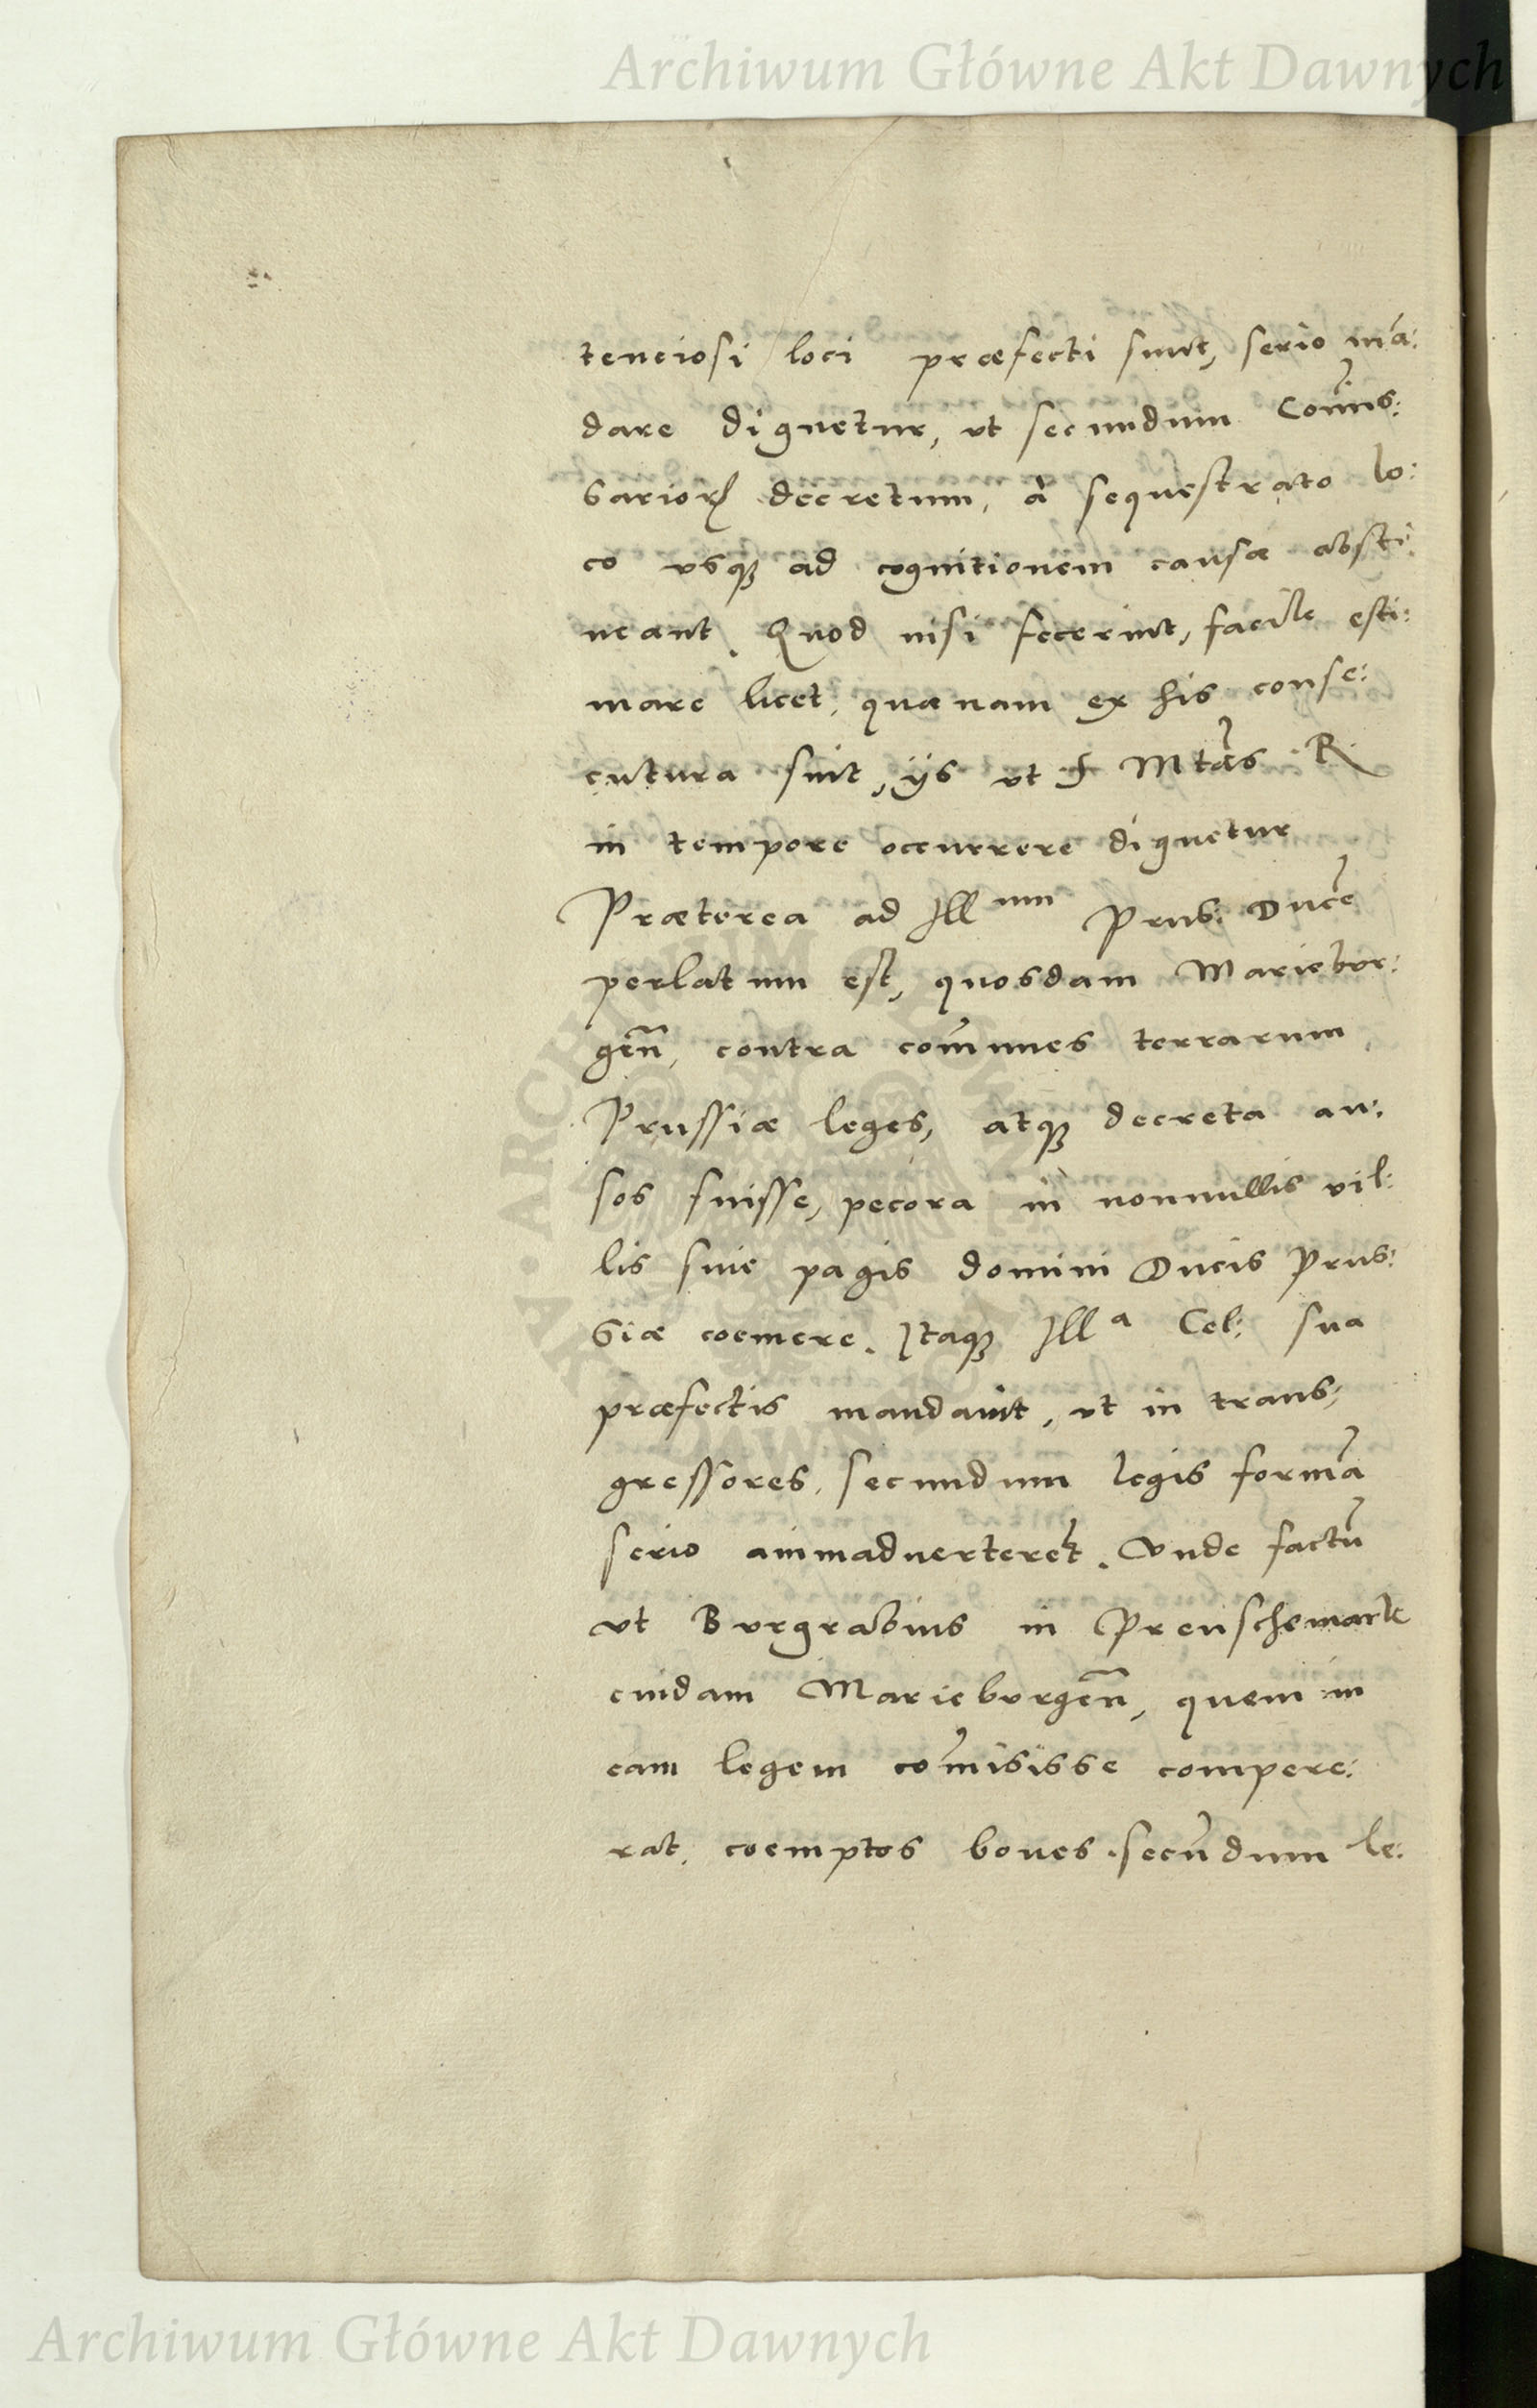 Archiwum Główne Akt Dawnych
tenciosi loci præfecti sunt, serio mã:
dare dignetur, vt secundum Com̃is:
sariorꝝ decretum, à sequestrato lo:
co vsqꝫ ad cognitionem causæ absti:
neant. Quod nisi fecerint, facile esti:
mare licet, quænam ex his conse:
cutura sint, ijs vt S Mtas R
in tempore occurrere dignetur
Præterea ad Illmum Prus: Ducẽ
perlatum est, quosdam Mariebur:
geñ, contra com̃unes terrarum
Prussiæ leges, atqꝫ decreta au:
sos fuisse, pecora in nonnullis vil:
lis siue pagis domini Ducis Prus:
siæ coemere. Itaqꝫ Illa Cel: sua
præfectis mandauit, vt in trans,
gressores, secundum legis formã
serio animaduerterẽt. Vnde factũ
vt Burgrabius in Preuschemarck
cuidam Marieburgeñ, quem in
eam legem com̃isisse compere:
rat, coemptos boues secũdum le:
Archiwum Główne Akt Dawnych